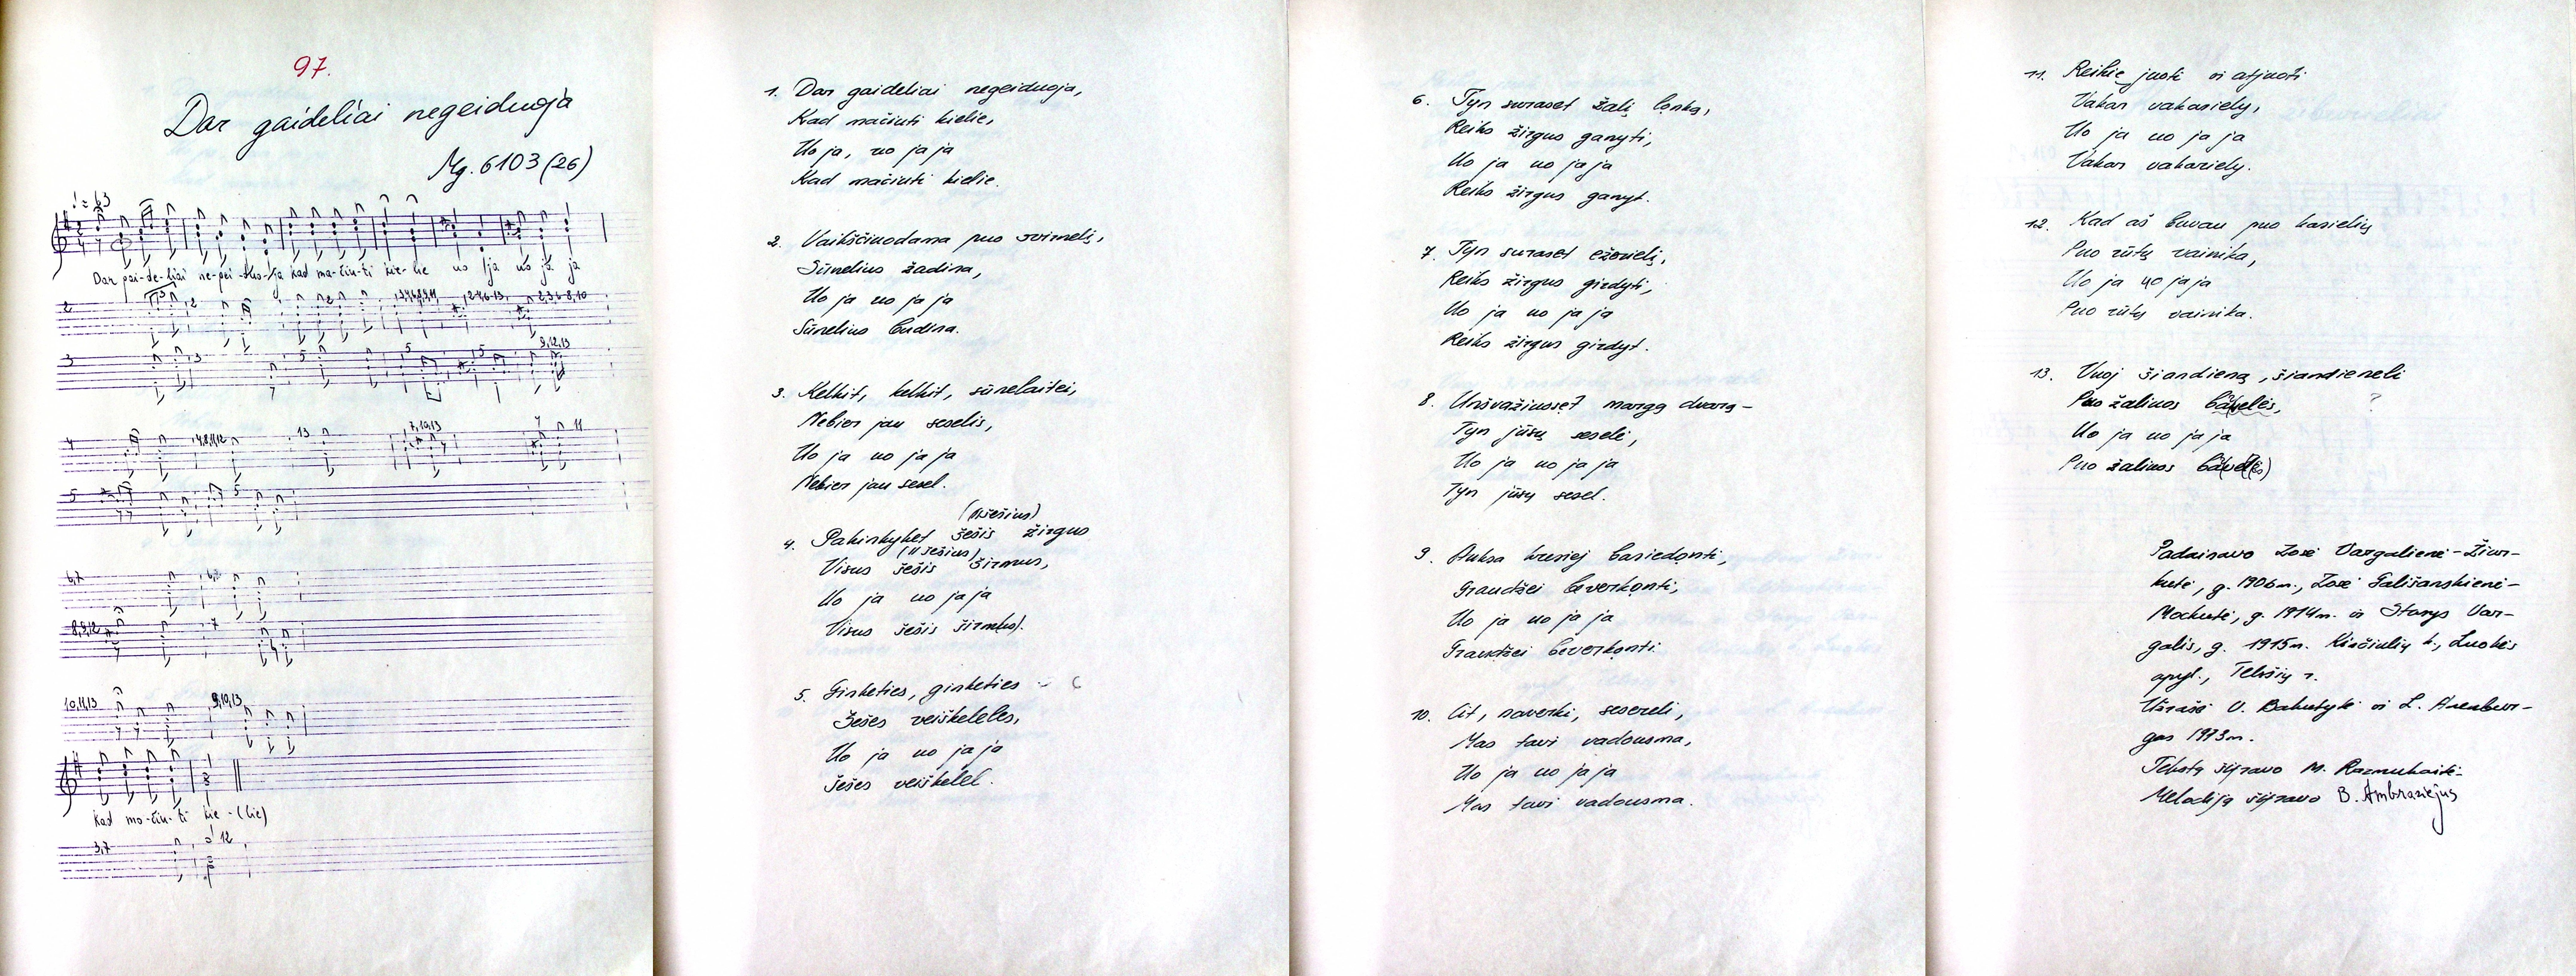 97.
Dar gaideliai negeiduoja
Mg. 6103 (26)
♩ = 63
Dar gai-de-liai ne-gei-duo-ja kad ma-čiu-ti kie-lie uo ja uo ja ja
2
3
9,12,13
4
4,8,11,12
13
7,10,13
7
11
5
5
6,7
8,9,12
7
10,11,13
9,10,13
kad mo-čiu-ti kie-(lie)
3,7
12
1. Dar gaideliai negeiduoja,
Kad mačiuti kielie,
Uo ja, uo ja ja
Kad mačiuti kielie.
2. Vaikščiuodama puo svirnelį,
Sūnelius žadina,
Uo ja uo ja ja
Sūnelius budina.
3. Kelkit, kelkit, sūnelaitei,
Nebier jau seselis,
Uo ja uo ja ja
Nebier jau sesel.
(II šešius)
4. Pakinkyket šešis žirgus
(II šešius)
Visus šešis širmus,
Uo ja uo ja ja
Visus šešis širm(us).
5. Ginketies, ginketies
Šešes veiškeleles,
Uo ja uo ja ja
Šešes veiškelel.
6. Tyn suraset žalį lonką,
Reiks žirgus ganyti,
Uo ja uo ja ja
Reiks žirgus ganyt.
7. Tyn suraset ežerielį,
Reiks žirgus girdyti,
Uo ja uo ja ja
Reiks žirgus girdyt.
8. Unšvažiuoset margą dvarą –
Tyn jūsų seselė,
Uo ja uo ja ja
Tyn jūsų sesel.
9. Auksa kresiej basiedonti,
Graudžei beverkonti,
Uo ja uo ja ja
Graudžei beverkonti.
10. Cit, naverki, sesereli,
Mas tavi vadousma,
Uo ja uo ja ja
Mas tavi vadousma.
11. Reikie juoti ir atjuoti
Vakar vakariely,
Uo ja uo ja ja
Vakar vakariely.
12. Kad aš buvau puo kasielių
Puo rūtų vainika,
Uo ja uo ja ja
Puo rūtų vainika.
13. Vuoj šiandieną, šiandieneli
Puo žaliuos bāvelės, ?
Uo ja uo ja ja
Puo žaliuos bāvel(ės)
Padainavo Zosė Vargalienė-Žiur-
kutė, g. 1906 m., Zosė Gališanskienė-
Mockutė, g. 1914 m. ir Stasys Var-
galis, g. 1915 m. Kinčiulių k., Luokės
apyl., Telšių r.
Užrašė V. Bakutytė ir L. Arenbur-
gas 1973 m.
Tekstą šifravo M. Razmukaitė
Melodiją šifravo B. Ambraziejus